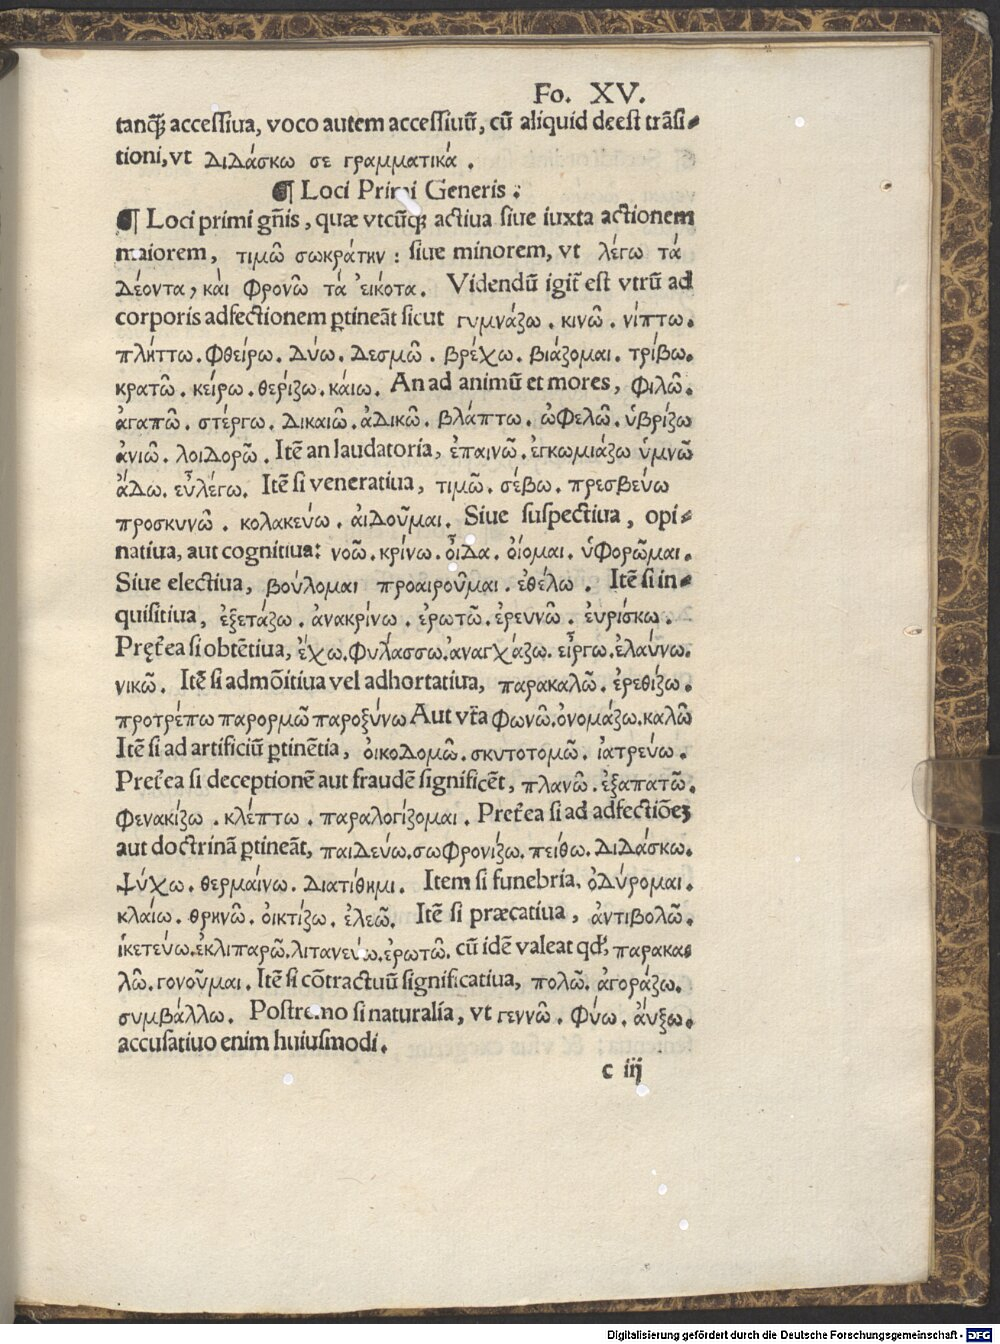 Fo. XV.
tanꝗ̃ accessiua, voco autem accessiuũ, cũ aliquid deest trãsi-
tioni, vt διδάσκω σε γραμματικά.
¶ Loci Primi Generis.
¶ Loci primi gñis, quæ vtcũqꝫ actiua siue iuxta actionem
maiorem, τιμῶ σωκράτην: siue minorem, vt λέγω τά
δέοντα, κάι φρονῶ τά ἐικότα. Videndũ igit̃ est vtrũ ad
corporis adfectionem ꝑtineãt sicut γυμνάζω. κινῶ. νίπτω.
πλήττω. φθείρω. δύω. δεσμῶ. βρέχω. βιάζομαι. τρίβω.
κρατῶ. κείρω. θερίζω. κάιω. An ad animũ et mores, φιλῶ.
ἀγαπῶ. στέργω. δικαιῶ. ἀδικῶ. βλάπτω. ὠφελῶ. ὑβρίζω
ἀνιῶ. λοιδορῶ. Itẽ an laudatoria, ἐπαινῶ. ἐγκωμιάζω ὑμνῶ
ἄδω. εὐλέγω. Itẽ si veneratiua, τιμῶ. σέβω. πρεσβεύω
προσκυνῶ. κολακεύω. ἀιδοῦμαι. Siue suspectiua, opi-
natiua, aut cognitiua: νοῶ. κρίνω. οἶδα. ὀίομαι. ὑφορῶμαι.
Siue electiua, βούλομαι προαιροῦμαι. ἐθέλω. Itẽ si in-
quisitiua, ἐξετάζω. ἀνακρίνω. ἐρωτῶ. ἐρευνῶ. ἐυρίσκω.
Pręt̃ea si obtẽtiua, ἔχω. φυλάσσω. ἀναγχάζω. εἴργω. ἐλαύνω.
νικῶ. Itẽ si admõitiua vel adhortatiua, παρακαλῶ. ἐρεθίζω.
προτρέπω παρορμῶ παροξύνω Aut vt̃a φωνῶ. ὀνομάζω. καλῶ
Itẽ si ad artificiũ ꝑtinẽtia, ὀικοδομῶ. σκυτοτομῶ. ἰατρεύω.
Pret̃ea si deceptionẽ aut fraudẽ significẽt, πλανῶ. ἐξαπατῶ.
φενακίζω. κλέπτω. παραλογίζομαι. Pret̃ea si ad adfectiõeꝫ
aut doctrinã ꝑtineãt, παιδεύω. σωφρονίζω. πείθω. διδάσκω.
ψύχω. θερμαίνω. διατίθημι. Item si funebria, ὀδύρομαι.
κλαίω. θρηνῶ. ὀικτίζω. ἐλεῶ. Itẽ si præcatiua, ἀντιβολῶ.
ἱκετεύω. ἐκλιπαρῶ. λιτανεύω. ἐρωτῶ. cũ idẽ valeat qđ, παρακα-
λῶ. γονοῦμαι. Itẽ si cõtractuũ significatiua, πολῶ. ἀγοράζω.
συμβάλλω. Postremo si naturalia, vt γεννῶ. φύω. ἀυξω.
accusatiuo enim huiusmodi.
c iij
Digitalisierung gefördert durch die Deutsche Forschungsgemeinschaft - DFG